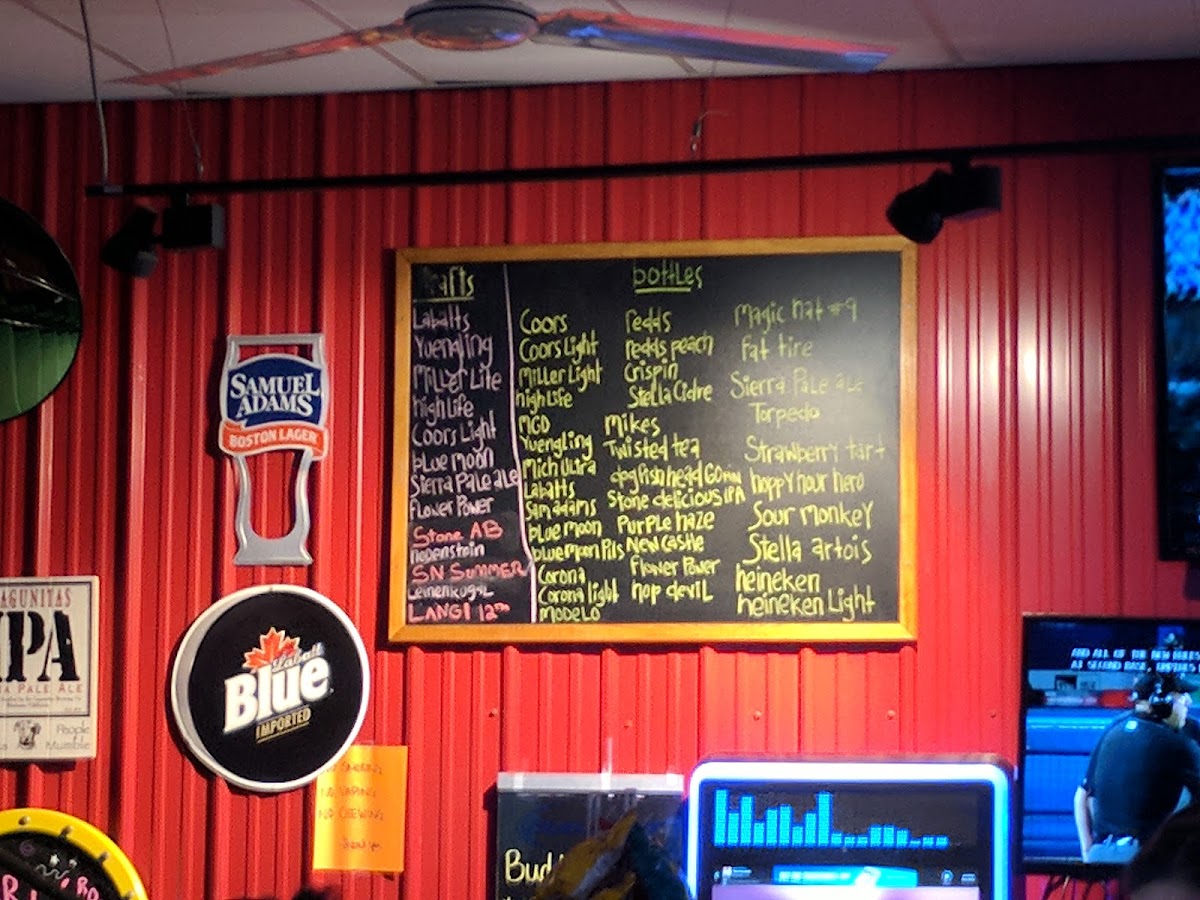 Drafts
Labatts
Yuengling
Miller Lite
high Life
Coors Light
blue moon
Sierra Pale ale
flower Power
Stone AB
hobenstein
SN SUMMER
Leinenkugal
LANGI 12th
bottles
Coors
Coors Light
Miller Light
high life
MGD
Yuengling
Mich Ultra
Labatts
Sam adams
blue moon
blue moon Pils
Corona
Corona light
Modelo
redds
redds peach
Crispin
Stella Cidre
Mikes
Twisted tea
dogfish head 60 min
Stone delicious IPA
Purple haze
New Castle
Flower Power
hop devil
Magic hat #9
Fat tire
Sierra Pale ale
Torpedo
Strawberry tart
hoppy hour hero
Sour monkey
Stella artois
heineken
heineken Light
SAMUEL
ADAMS
BOSTON LAGER
AGUNITAS
IPA
A PALE ALE
People
Mumble
Labatt
Blue
IMPORTED
NO VAPING
NO CHEWING
Bud
AND ALL OF THE NEW RULES
AT SECOND BASE, UMPIRES